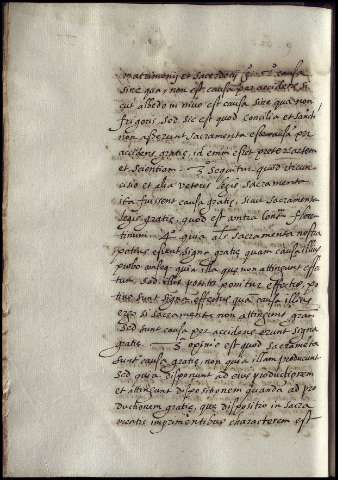 matrimonij et sacerdotij. 2º causa
sine qua, non est causa per accidens si
cut albedo in nive est causa sine qua non
frigoris, sed sic est quod concilia et sancti
non asserunt sacramenta esse causā per
accidens gratie, id enim esset preter artem
et scientiam. 3º sequitur quod circun
cisio et alia veteris legis sacramenta
ita fuissent causa gratie, sicut sacramenta
legis gratie, quod est contra Flore
ntinum. 4º quia sacramenta nostra
potius essent signa gratie quam causa illius
probo quia illa que non attingunt effe
ctum, sed illis positis ponitur effectus, po
tius sunt signa effectus quā causa illius
ergo si sacramenta non attingunt gratiā
sed sunt causa per accidens erunt signa
gratie. 3ª opinio est quod sacramēta
sunt causa gratie, non quia illam producunt
sed quia disponunt ad eius productionem
et attingunt dispositionem quandā ad pro
ductionem gratie, que dispositio in sacra
mentis imprimentibus characterem est